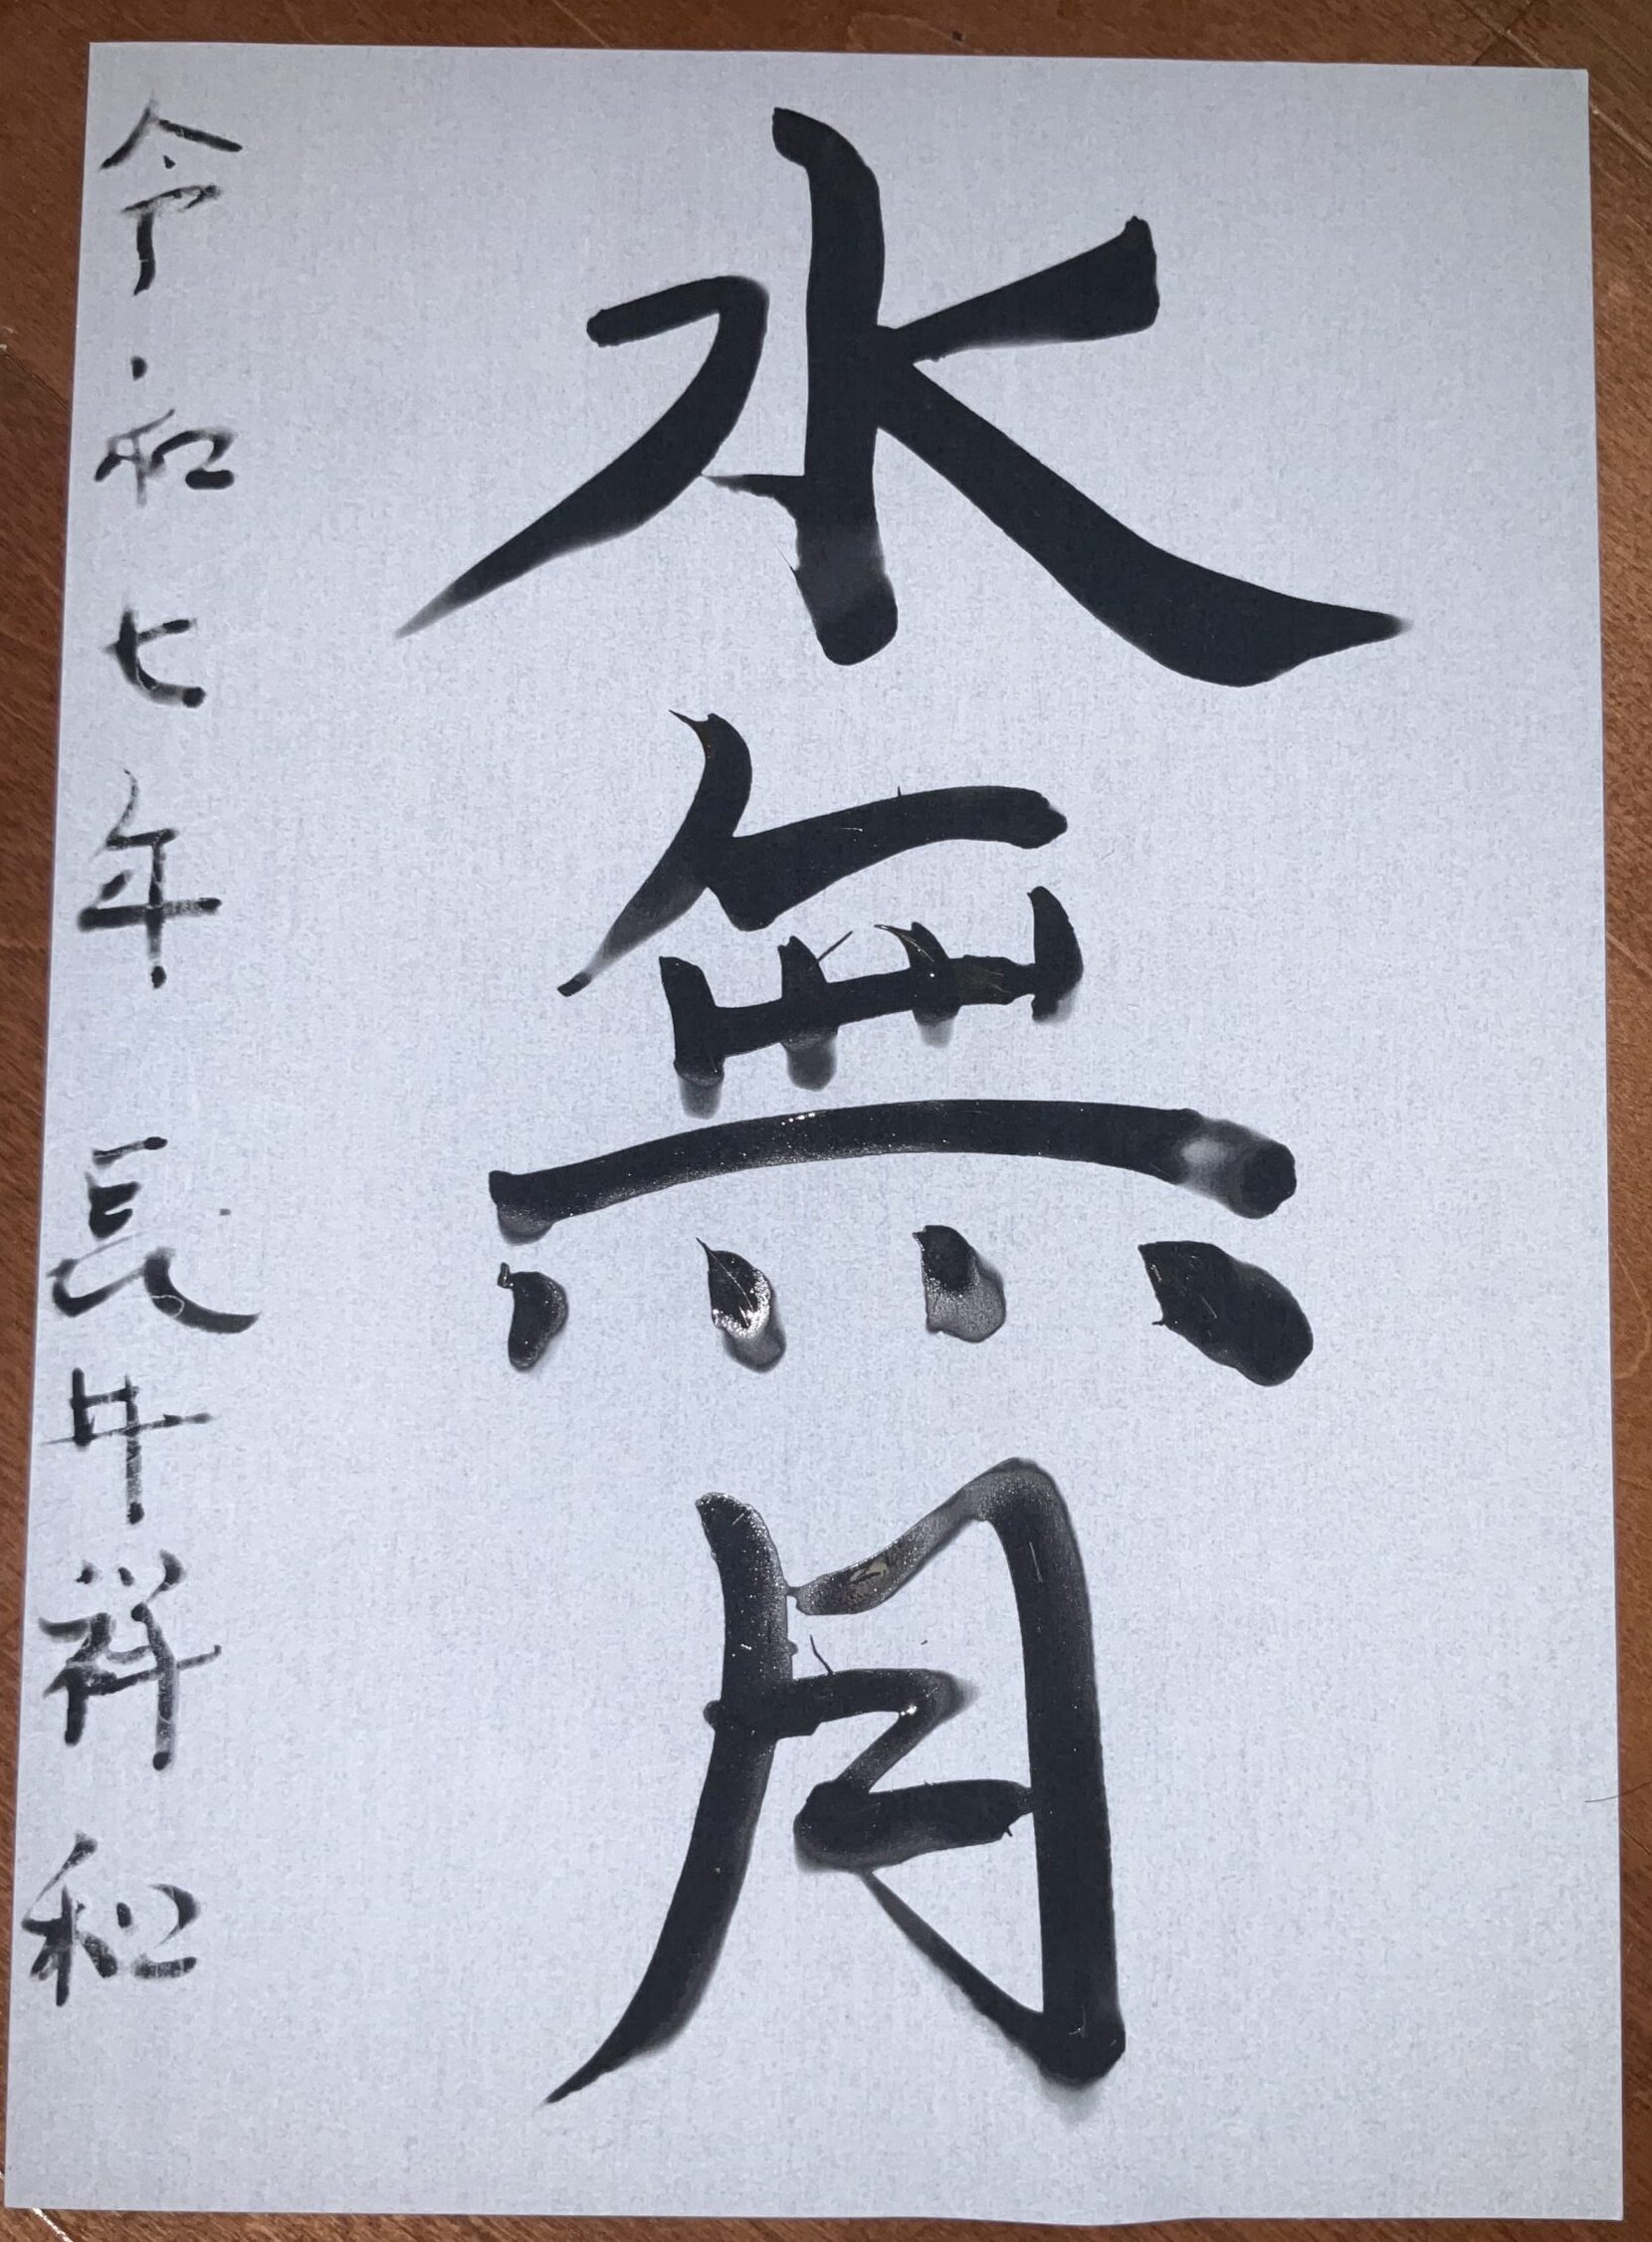 水無月
令和七年 長井祥和